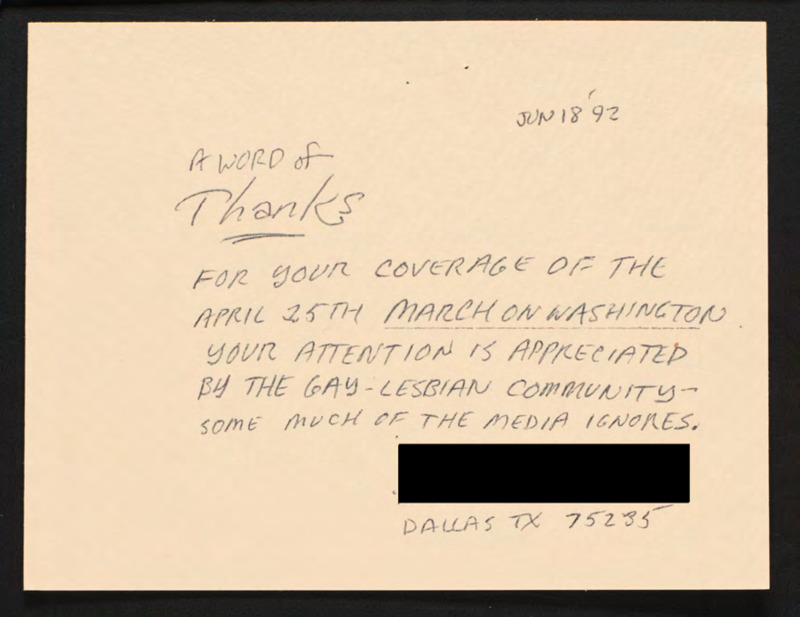 JUN 18 '92
A WORD of
Thanks
FOR YOUR COVERAGE OF THE
APRIL 25TH MARCH ON WASHINGTON
YOUR ATTENTION IS APPRECIATED
BY THE GAY-LESBIAN COMMUNITY-
SOME MUCH OF THE MEDIA IGNORES.
DALLAS TX 75235